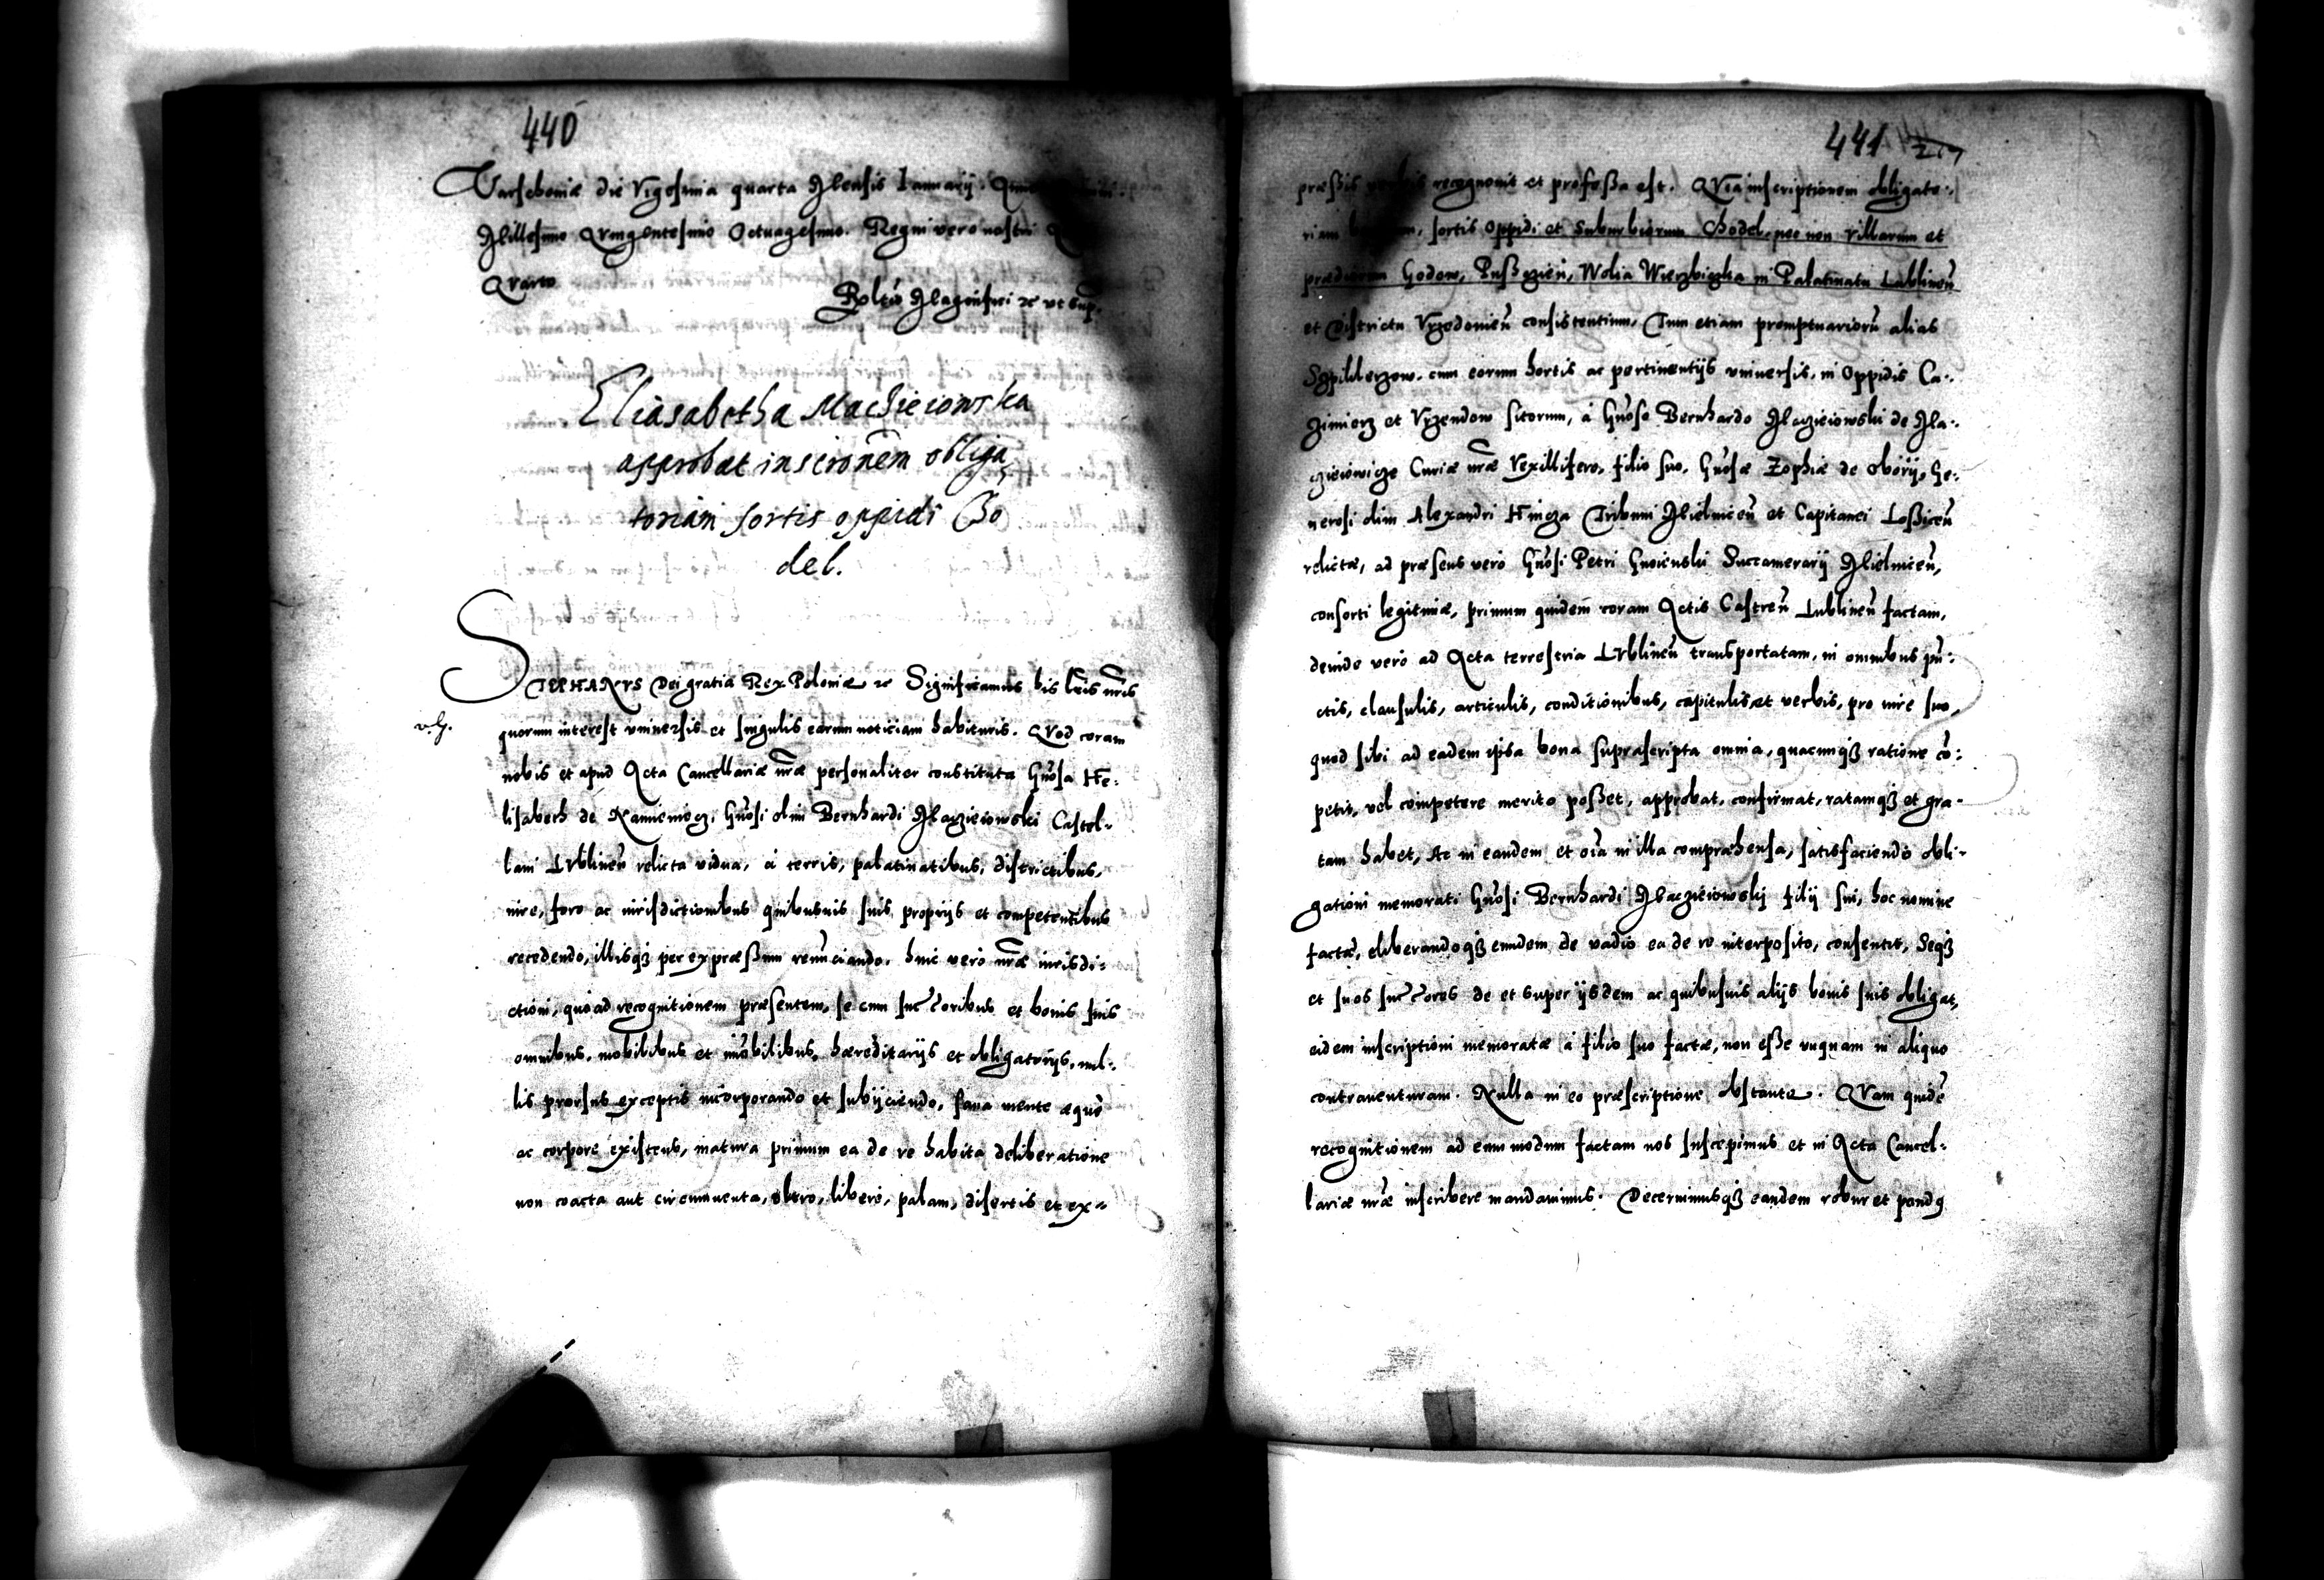 440
Varschoviæ die Vigesima quarta Mensis Januarij.
Millesimo Quingentesimo Octuagesimo. Regni vero nostri
Quarto
Rel̃tio Magnifici &c ut sup.
Eliasabetha Macieiowska
approbat inscrōnem obliga
toriam sortis oppidi Cho
del.
STEPHANUS Dei gratia Rex Poloniæ &c Significamus his lr̃is nr̃is
quorum interest universis et singulis earum noticiam habituris. Quod coram
nobis et apud Acta Cancellariæ nr̃æ personaliter constituta Gñosa He-
lisabeth de Kamieniecz, Gñosi olim Bernhardi Macziejowski Castel-
lani Lublineñ relicta vidua, à terris, palatinatibus, districtibus,
iure, foro ac iurisdictionibus quibusvis suis proprijs et competentibus
recedendo, illisq́3 per expræßum renũciando. huic verò nr̃æ iurisdi-
ctioni, quoad recognitionem præsentem, se cum suc̃c̃oribus et bonis suis
omnibus, mobilibus et im̃obilibus, hæreditarijs et obligatorijs, nul-
lis prorsus exceptis incorporando et subijciendo, sana mente æque
ac corpore existens, matura primum ea de re habita deliberatione
non coacta aut circumventa, ultro, liberè, palam, disertis et ex-
441
præßis recognovit et profeßa est. Quia inscriptionem obligato-
riam sortis Oppidi et Suburbiorum Chodel, nec non villarum et
prædiorum Godow, Pußczien, Wolia Wierzbiczka in Palatinatu Lublineñ
et Districtu Vrzedovieñ consistentium, Tum etiam promptuariorũ alias
Szpiklerzow, cum eorum hortis ac pertinentijs universis, in Oppidis Ca-
zimierz et Vrzendow sitorum, à Gñoso Bernhardo Macziejowski de Ma-
czieiowicze Curiæ nr̃æ Vexillifero, filio suo, Gñosæ Zophiæ de Obory, Ge-
nerosi olim Alexandri Hincza Tribuni Mielniceñ et Capitanei Loßiceñ
relictæ, ad præsens verò Gñosi Petri Gnoienski Succamerarij Mielniceñ,
consorti legitimæ, primum quidem coram Actis Castreñ Lublineñ factam,
deinde verò ad Acta terrestria Lublineñ transportatam, in omnibus pũ-
ctis, clausulis, articulis, conditionibus, capitulis et verbis, pro iure suo,
quod sibi ad eadem ipsa bona suprascripta omnia, quacunq́3 ratione cõ-
petit, vel competere merito poßet, approbat, confirmat, ratamq́3 et gra-
tam habet, Ac in eandem et oĩa in illa compræhensa, satisfaciendo obli-
gationi memorati Gñosi Bernhardi Macziejowskij filij sui, hoc nomine
factæ, eliberandoq́3 eundem de vadio ea de re interposito, consentit, Seq́3
et suos suc̃c̃ores de et super ijsdem ac quibusvis alijs bonis suis obligat,
eidem inscriptioni memoratæ à filio suo factæ, non eße unquam in aliquo
contraventuram. Nulla in eo præscriptione obstante. Quam quidẽ
recognitionem ad eum modum factam nos suscepimus et in Acta Cancel-
lariæ nr̃æ inscribere mandavimus. Decernimusq́3 eandem robur et pondq